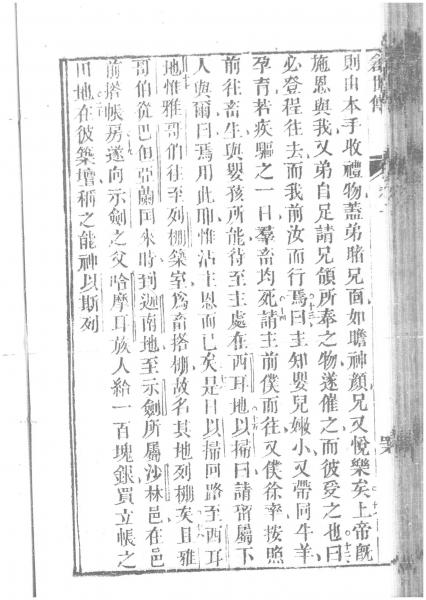 創世傳
則由本手收禮物蓋弟睹兄面如瞻神顏兄又悅樂矣上帝既
施恩與我又弟自足請兄領所奉之物遂催之而彼受之也曰
必登程往去而我前汝而行焉曰主知嬰兒嫩小又帶同牛羊
孕育若疾驅之一日羣畜均死請主前僕而往又僕徐率按照
前往畜牛與嬰孩所能待至主處在西耳地以掃曰請留屬下
人與爾曰焉用此耶惟沾主恩而已矣是日以掃回路至西耳
地惟雅哥伯往至列棚築室爲畜搭棚故名其地列棚矣且雅
哥伯從巴但亞蘭回來時到迦南地至示劍所屬沙林邑在邑
前搭帳房遂向示劍之父哈摩耳放人給一百塊銀買立帳之
田地在彼築壇稱之能神以斯列